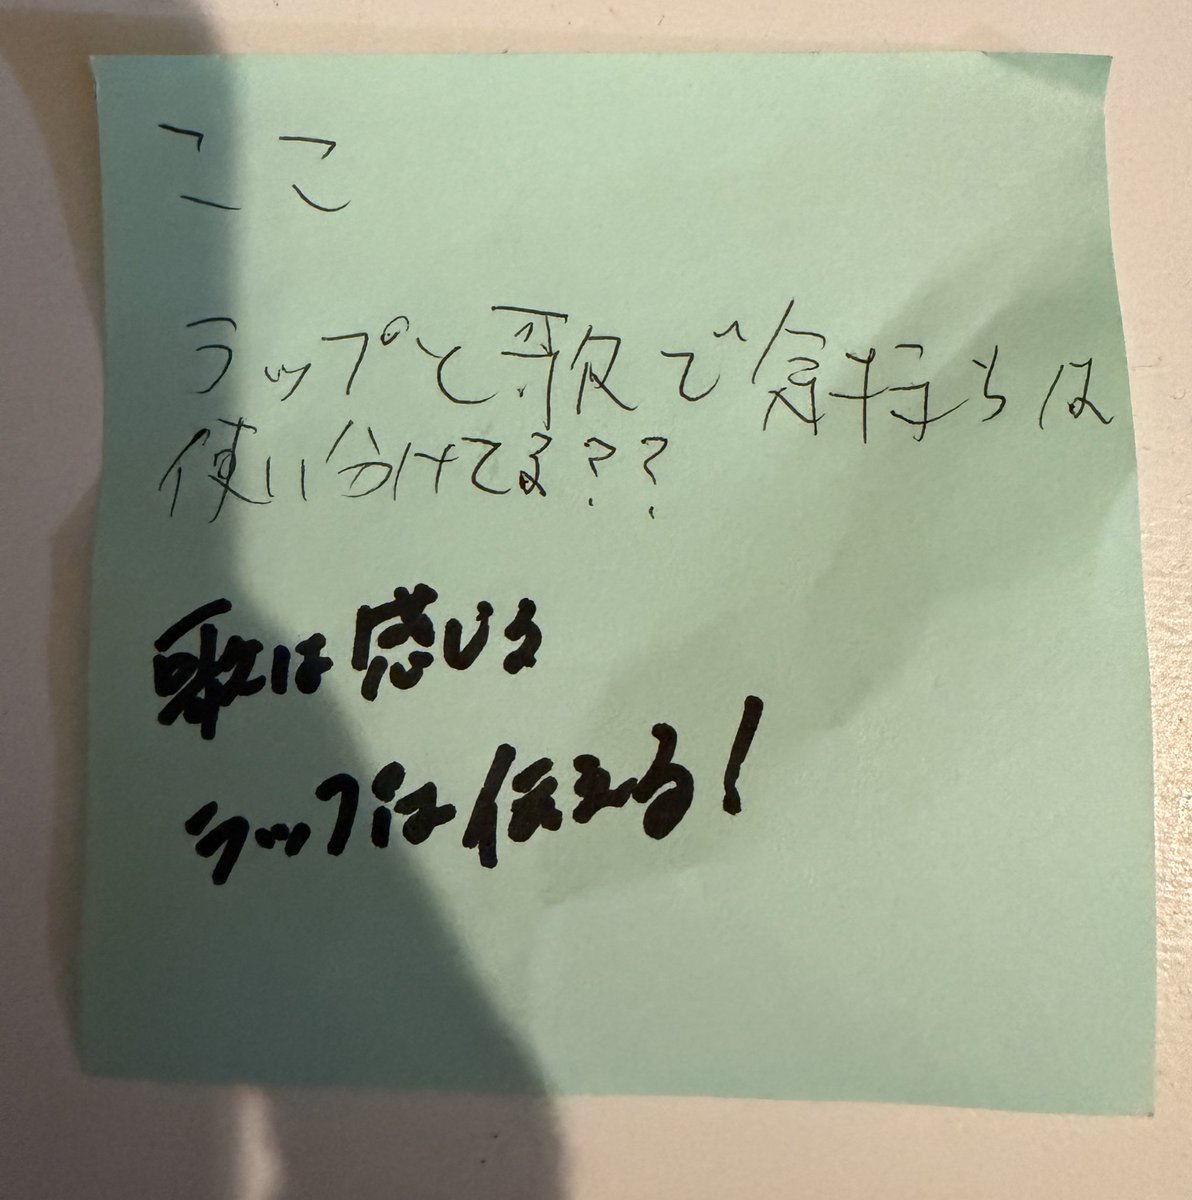 ここ
ラップと歌で気持ちは
使い分けてる??
歌は感じる
ラップは伝える!